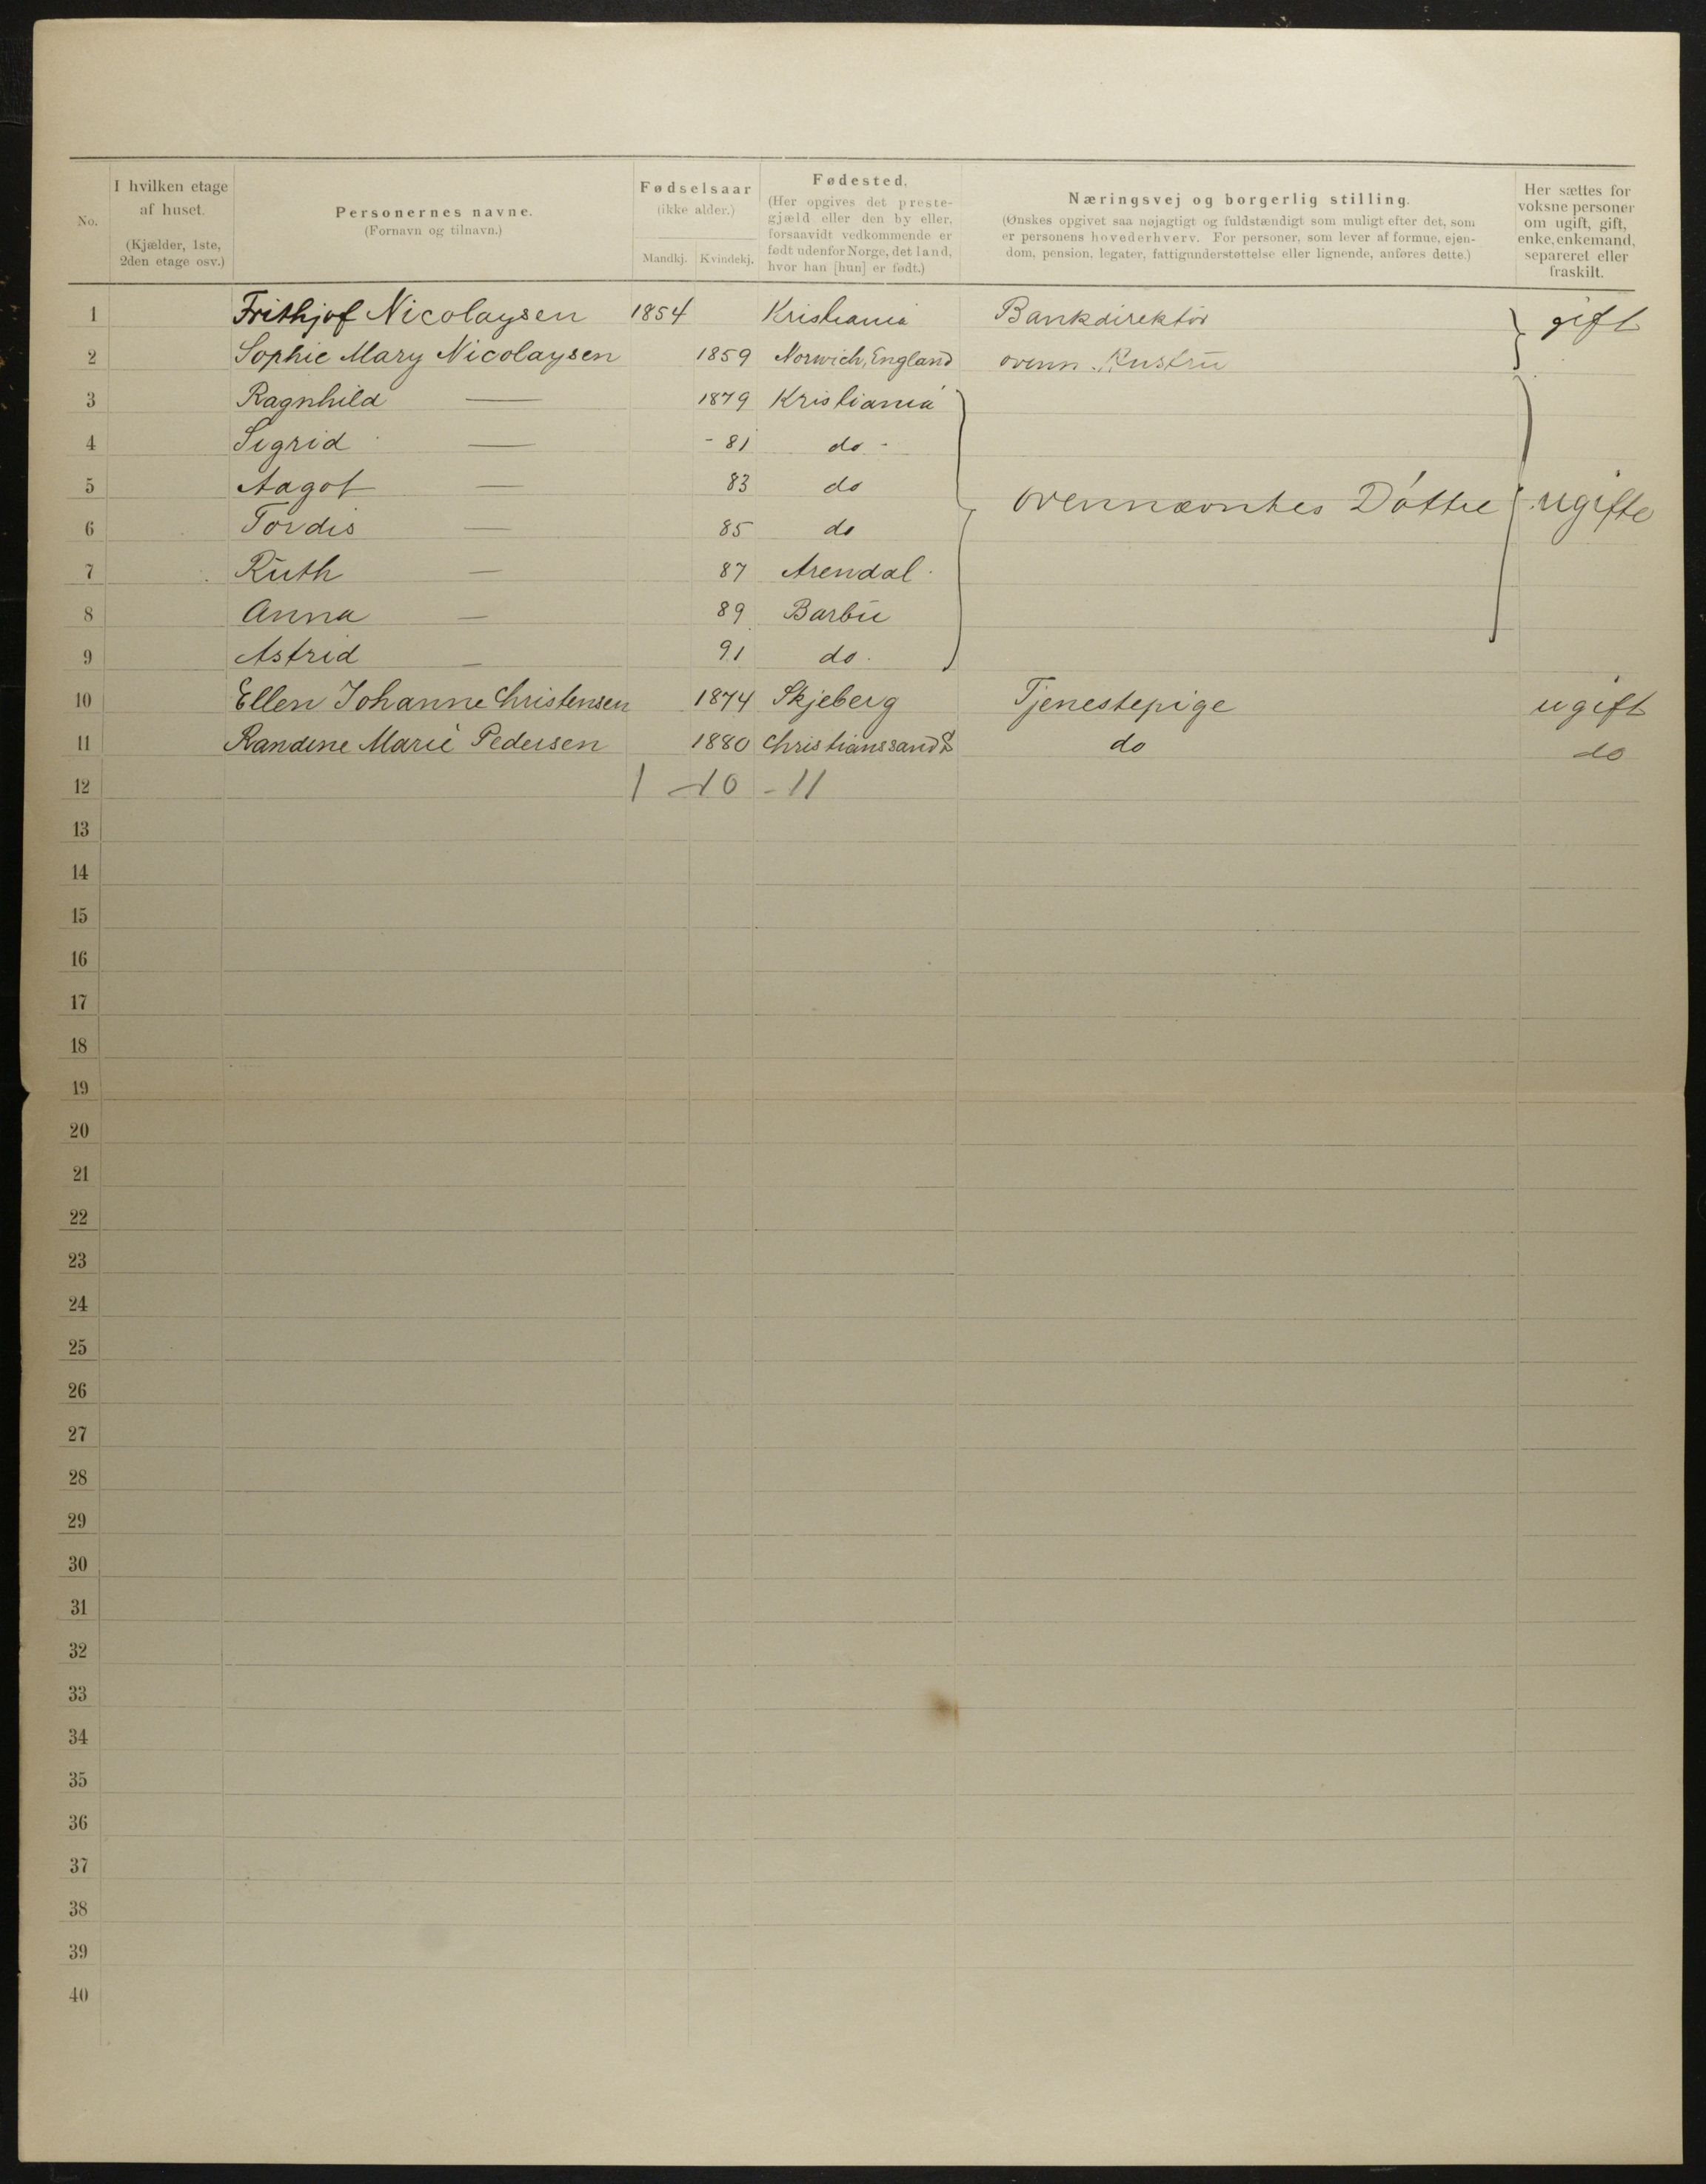 No.
I hvilken etage af huset.
(Kjælder, 1ste, 2den etage osv.)
Personernes navne.
(Fornavn og tilnavn.)
Fødselsaar
(ikke alder.)
Mandkj. Kvindekj.
Fødested.
(Her opgives det preste-
gjæld eller den by eller,
forsaavidt vedkommende er
født udenfor Norge, det land,
hvor han [hun] er født.)
Næringsvej og borgerlig stilling.
(Ønskes opgivet saa nøjagtigt og fuldstændigt som muligt efter det, som
er personens hovederhverv. For personer, som lever af formue, ejen-
dom, pension, legater, fattigunderstøttelse eller lignende, anføres dette.)
Her sættes for
voksne personer
om ugift, gift,
enke, enkemand,
separeret eller
fraskilt.
1 Frithjof Nicolaysen 1854 Kristiania Bankdirektør } gift
2 Sophie Mary Nicolaysen 1859 Norwich, England ovenn. Kustru
3 Ragnhild — 1879 Kristiania
4 Sigrid — - 81 do -
5 Aagot — 83 do } ovennævntes Døttre } ugifte
6 Tordis — 85 do
7 Ruth — 87 Arendal
8 Anna — 89 Barbu
9 Astrid — 91 do.
10 Ellen Johanne Christensen 1874 Skjeberg Tjenestepige ugift
11 Randine Marie Pedersen 1880 Christianssand S do do
12 1 - 10 - 11
13
14
15
16
17
18
19
20
21
22
23
24
25
26
27
28
29
30
31
32
33
34
35
36
37
38
39
40